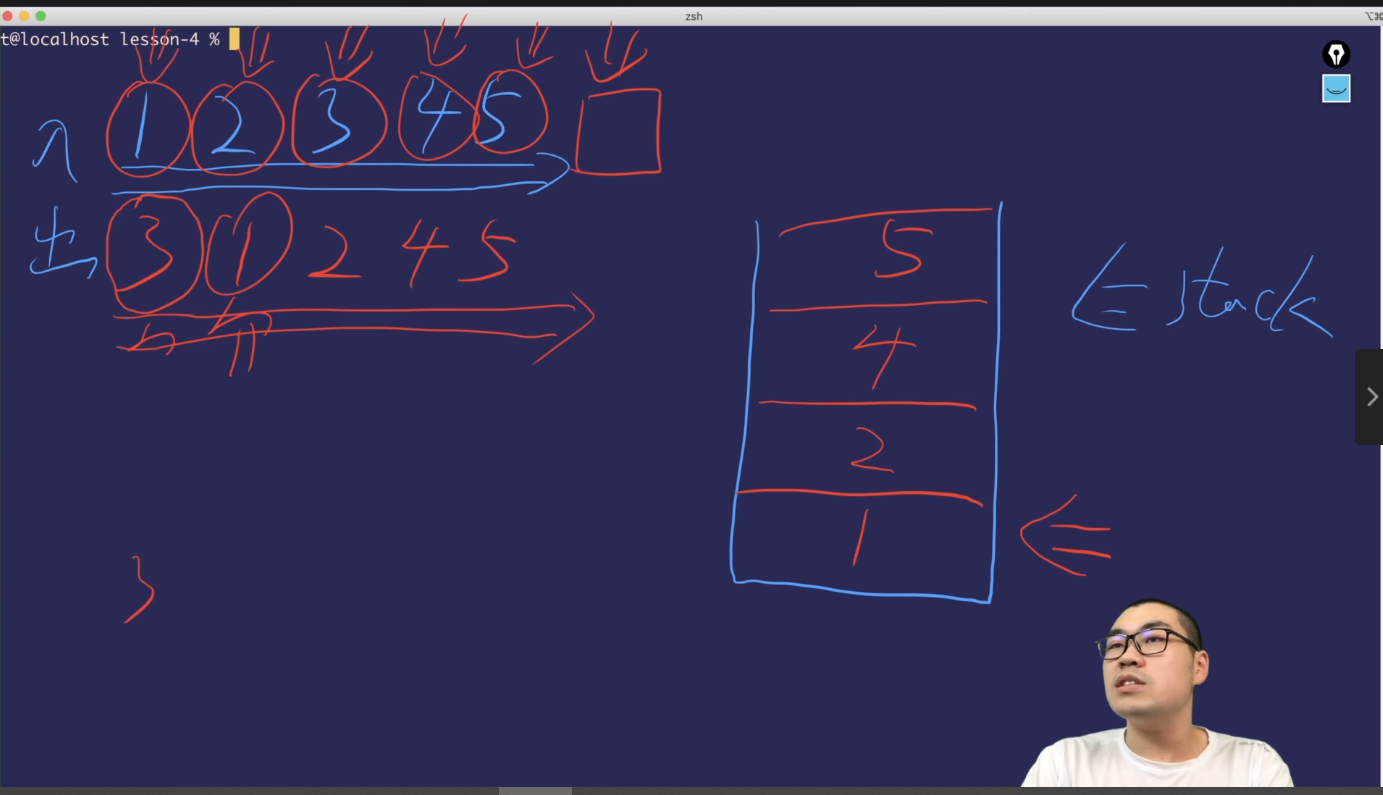 zsh
t@localhost lesson-4 %
入 1 2 3 4 5
出 3 1 2 4 5
5
4
2
1
stack
3